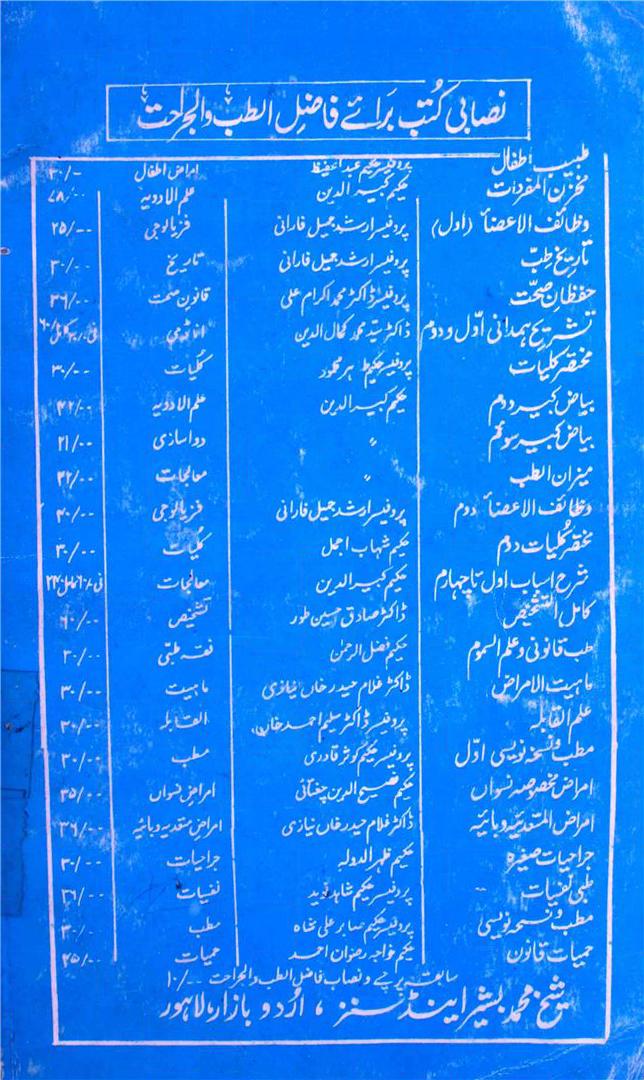 نصابی کتب برائے فاضل الطب والجراحت
طبیب اطفال پروفیسر حکیم عبدالحفیظ امراض اطفال ۳۰/-
مخزن المفردات حکیم کبیر الدین علم الادویہ ۷۸/۰۰
وظائف الاعضاء (اول) پروفیسر ارشد جمیل فارانی فزیالوجی ۲۵/۰۰
تاریخ طب پروفیسر ارشد جمیل فارانی تاریخ ۳۰/۰۰
حفظان صحت پروفیسر ڈاکٹر محمد اکرام علی قانون صحت ۳۶/۰۰
تشریح ہمدانی اول و دوم ڈاکٹر سید محمد کمال الدین اناٹومی
مختصر کلیات پروفیسر حکیم کلیات ۳۰/۰۰
بیاض کبیر دوم حکیم کبیر الدین علم الادویہ ۴۲/۰۰
بیاض کبیر سوئم ″ دواسازی ۲۱/۰۰
میزان الطب ″ معالجات ۴۲/۰۰
وظائف الاعضاء دوم پروفیسر ارشد جمیل فارانی فزیالوجی ۳۰/۰۰
مختصر کلیات دوم حکیم شہاب اجمل کلیات ۳۰/۰۰
شرح اسباب اول تا چہارم حکیم کبیر الدین معالجات
کامل التشخیص ڈاکٹر صادق حسین طور تشخیص ۶۰/۰۰
طب قانونی و علم السموم حکیم فضل الرحمٰن فقہ طبی ۳۰/۰۰
ماہیت الامراض ڈاکٹر غلام حیدر خاں نیازی ماہیت ۳۰/۰۰
علم القابلہ پروفیسر ڈاکٹر سلیم احمد خاں القابلہ ۳۰/۰۰
مطب و نسخہ نویسی اول پروفیسر حکیم کوثر قادری مطب ۳۰/۰۰
امراض مخصوصہ نسواں حکیم فصیح الدین چغتائی امراض نسواں ۳۵/۰۰
امراض المتعدیہ و بائیہ ڈاکٹر غلام حیدر خاں نیازی امراض متعدیہ و بائیہ ۳۶/۰۰
جراحیات صغیرہ حکیم ظہر الدولہ جراحیات ۳۰/۰۰
طبی نفسیات پروفیسر حکیم نفسیات ۳۶/۰۰
مطب و نسخہ نویسی پروفیسر حکیم صابر علی شاہ مطب ۳۰/۰۰
حمیات قانون حکیم خواجہ رضوان احمد حمیات ۲۵/۰۰
سابقہ پرچے و نصاب فاضل الطب والجراحت ۱۰/۰۰
شیخ محمد بشیر اینڈ سنز، اردو بازار، لاہور